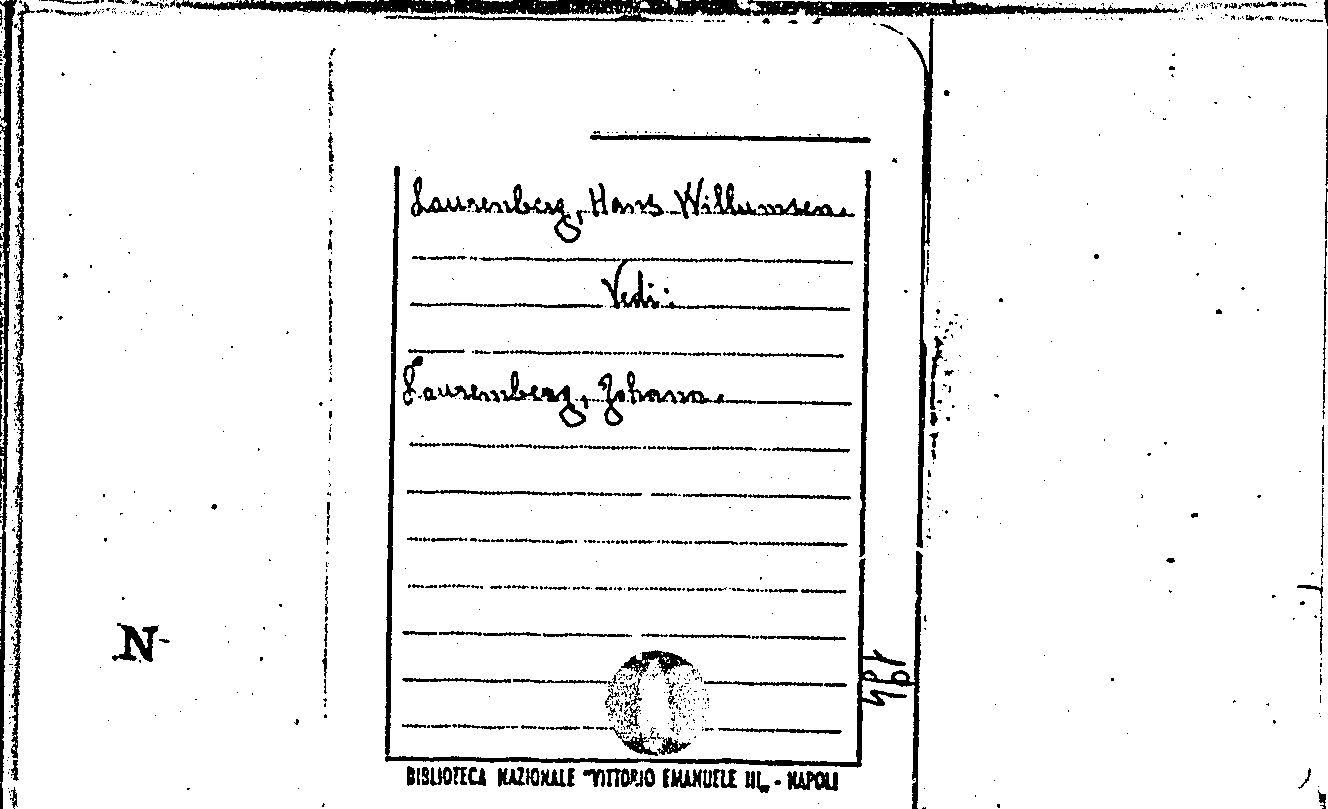 Laurenberg, Hans Willumsen.
Vedi:
Lauremberg, Johann.
N
BIBLIOTECA NAZIONALE "VITTORIO EMANUELE III„ - NAPOLI